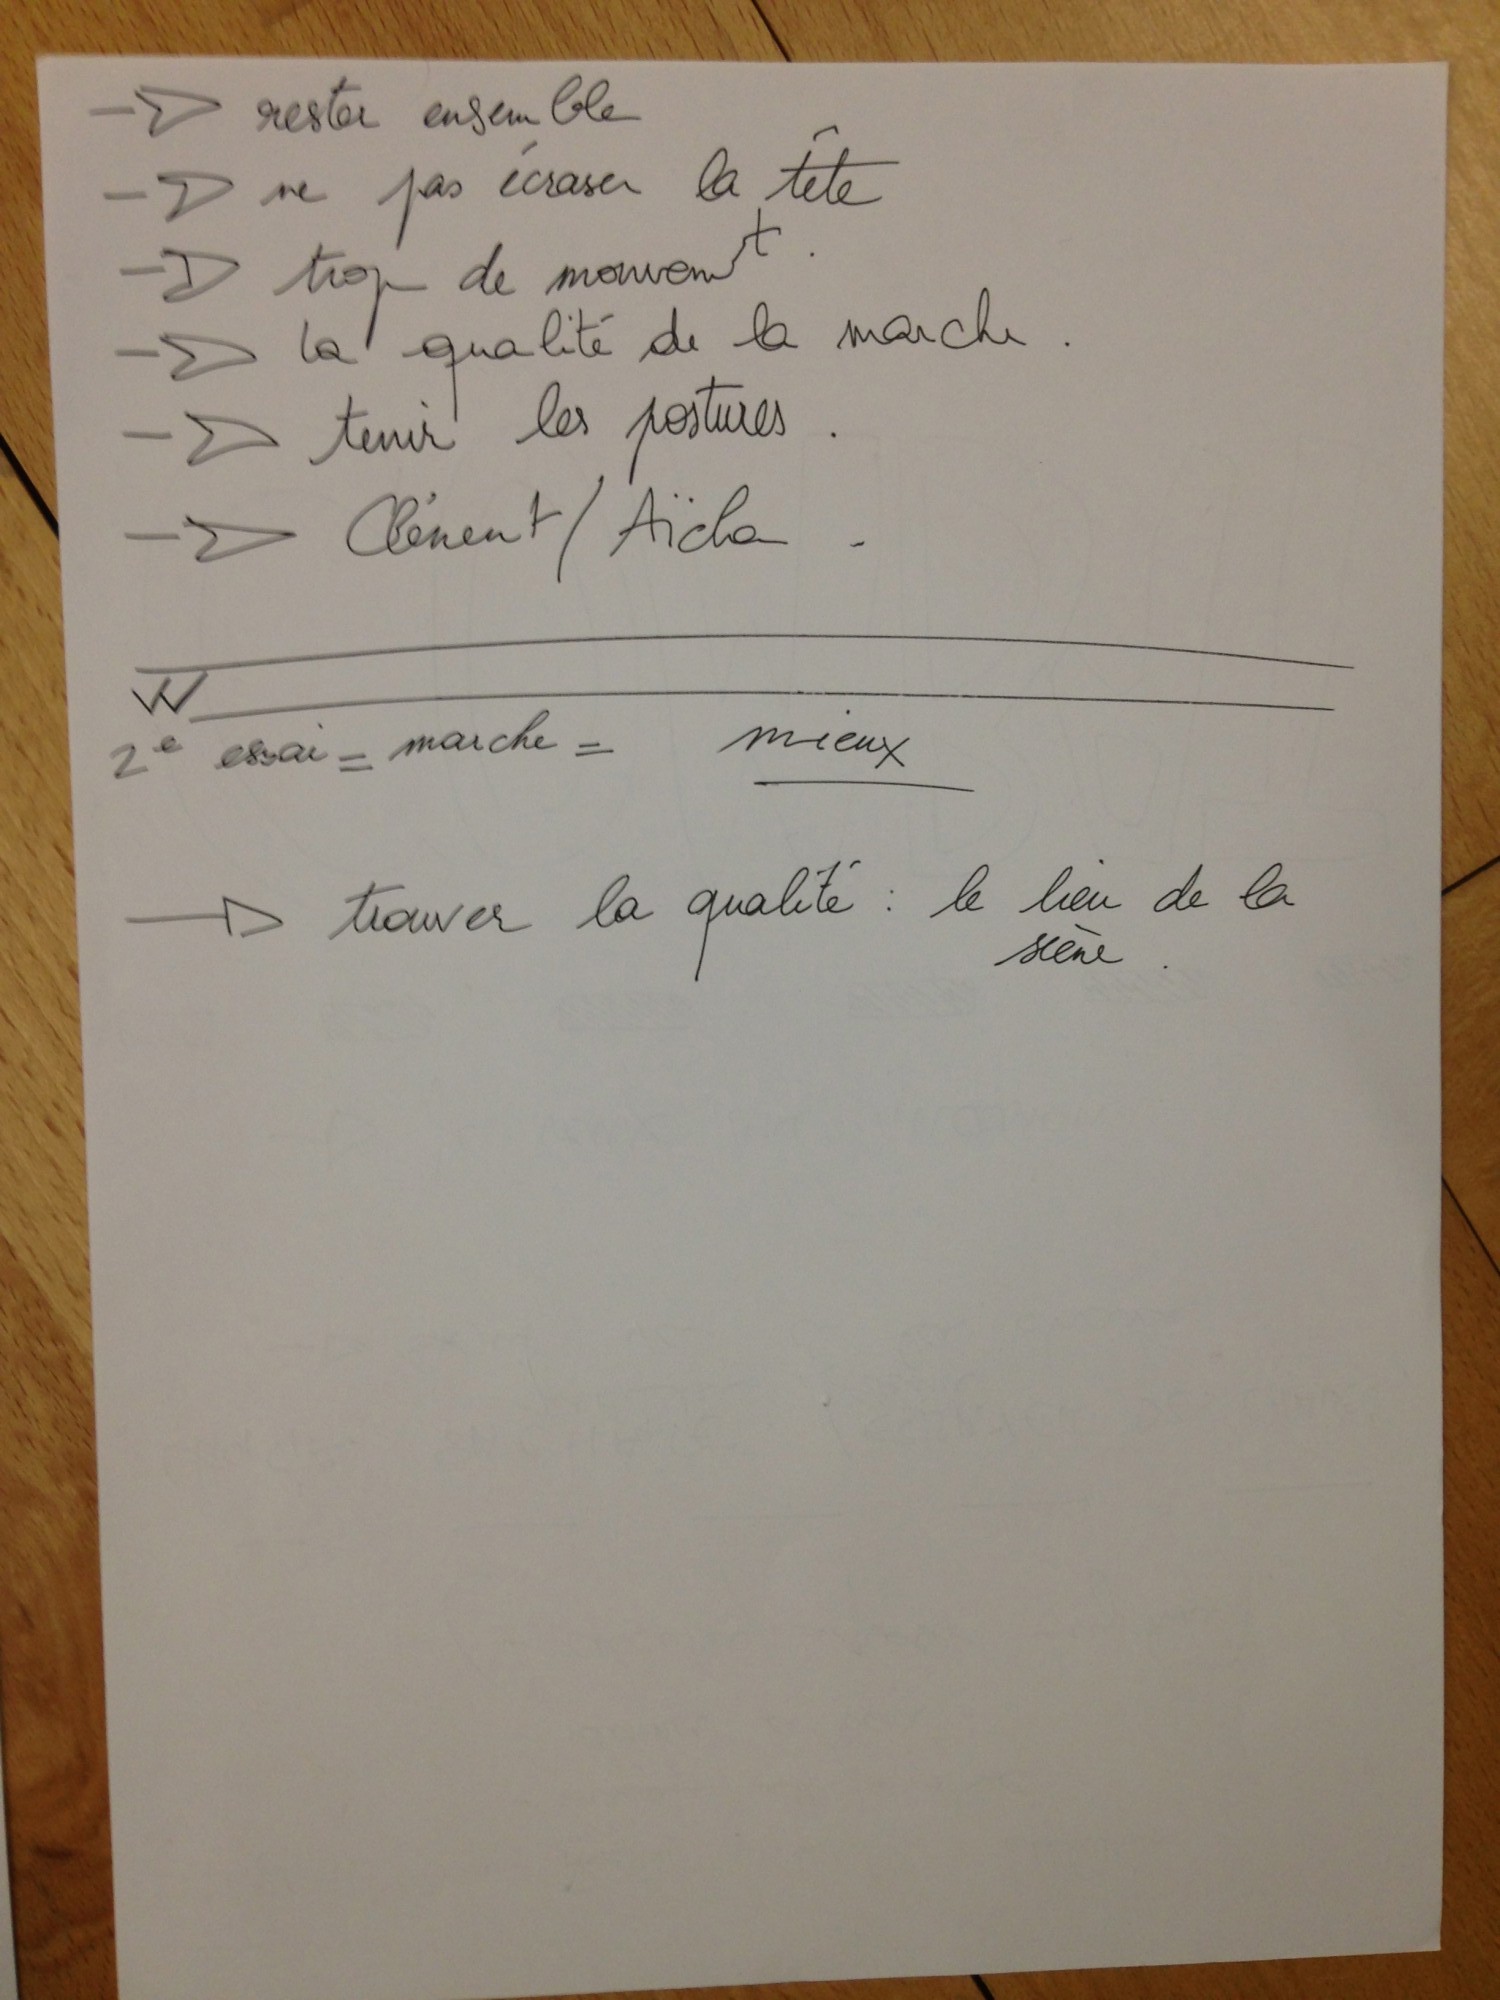 → rester ensemble
→ ne pas écraser la tête
→ trop de mouvemt.
→ la qualité de la marche.
→ tenir les postures.
→ Clément / Aïcha -
2e essai = marche = mieux
→ trouver la qualité : le lieu de la
scène.